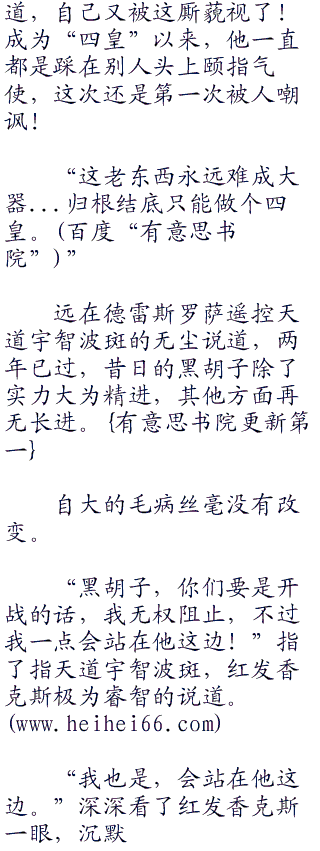 道，自己又被这厮藐视了！
成为“四皇”以来，他一直
都是踩在别人头上颐指气
使，这次还是第一次被人嘲
讽！
“这老东西永远难成大
器...归根结底只能做个四
皇。(百度“有意思书
院”)”
远在德雷斯罗萨遥控天
道宇智波斑的无尘说道，两
年已过，昔日的黑胡子除了
实力大为精进，其他方面再
无长进。{有意思书院更新第
一}
自大的毛病丝毫没有改
变。
“黑胡子，你们要是开
战的话，我无权阻止，不过
我一点会站在他这边！”指
了指天道宇智波斑，红发香
克斯极为睿智的说道。
(www.heihei66.com)
“我也是，会站在他这
边。”深深看了红发香克斯
一眼，沉默